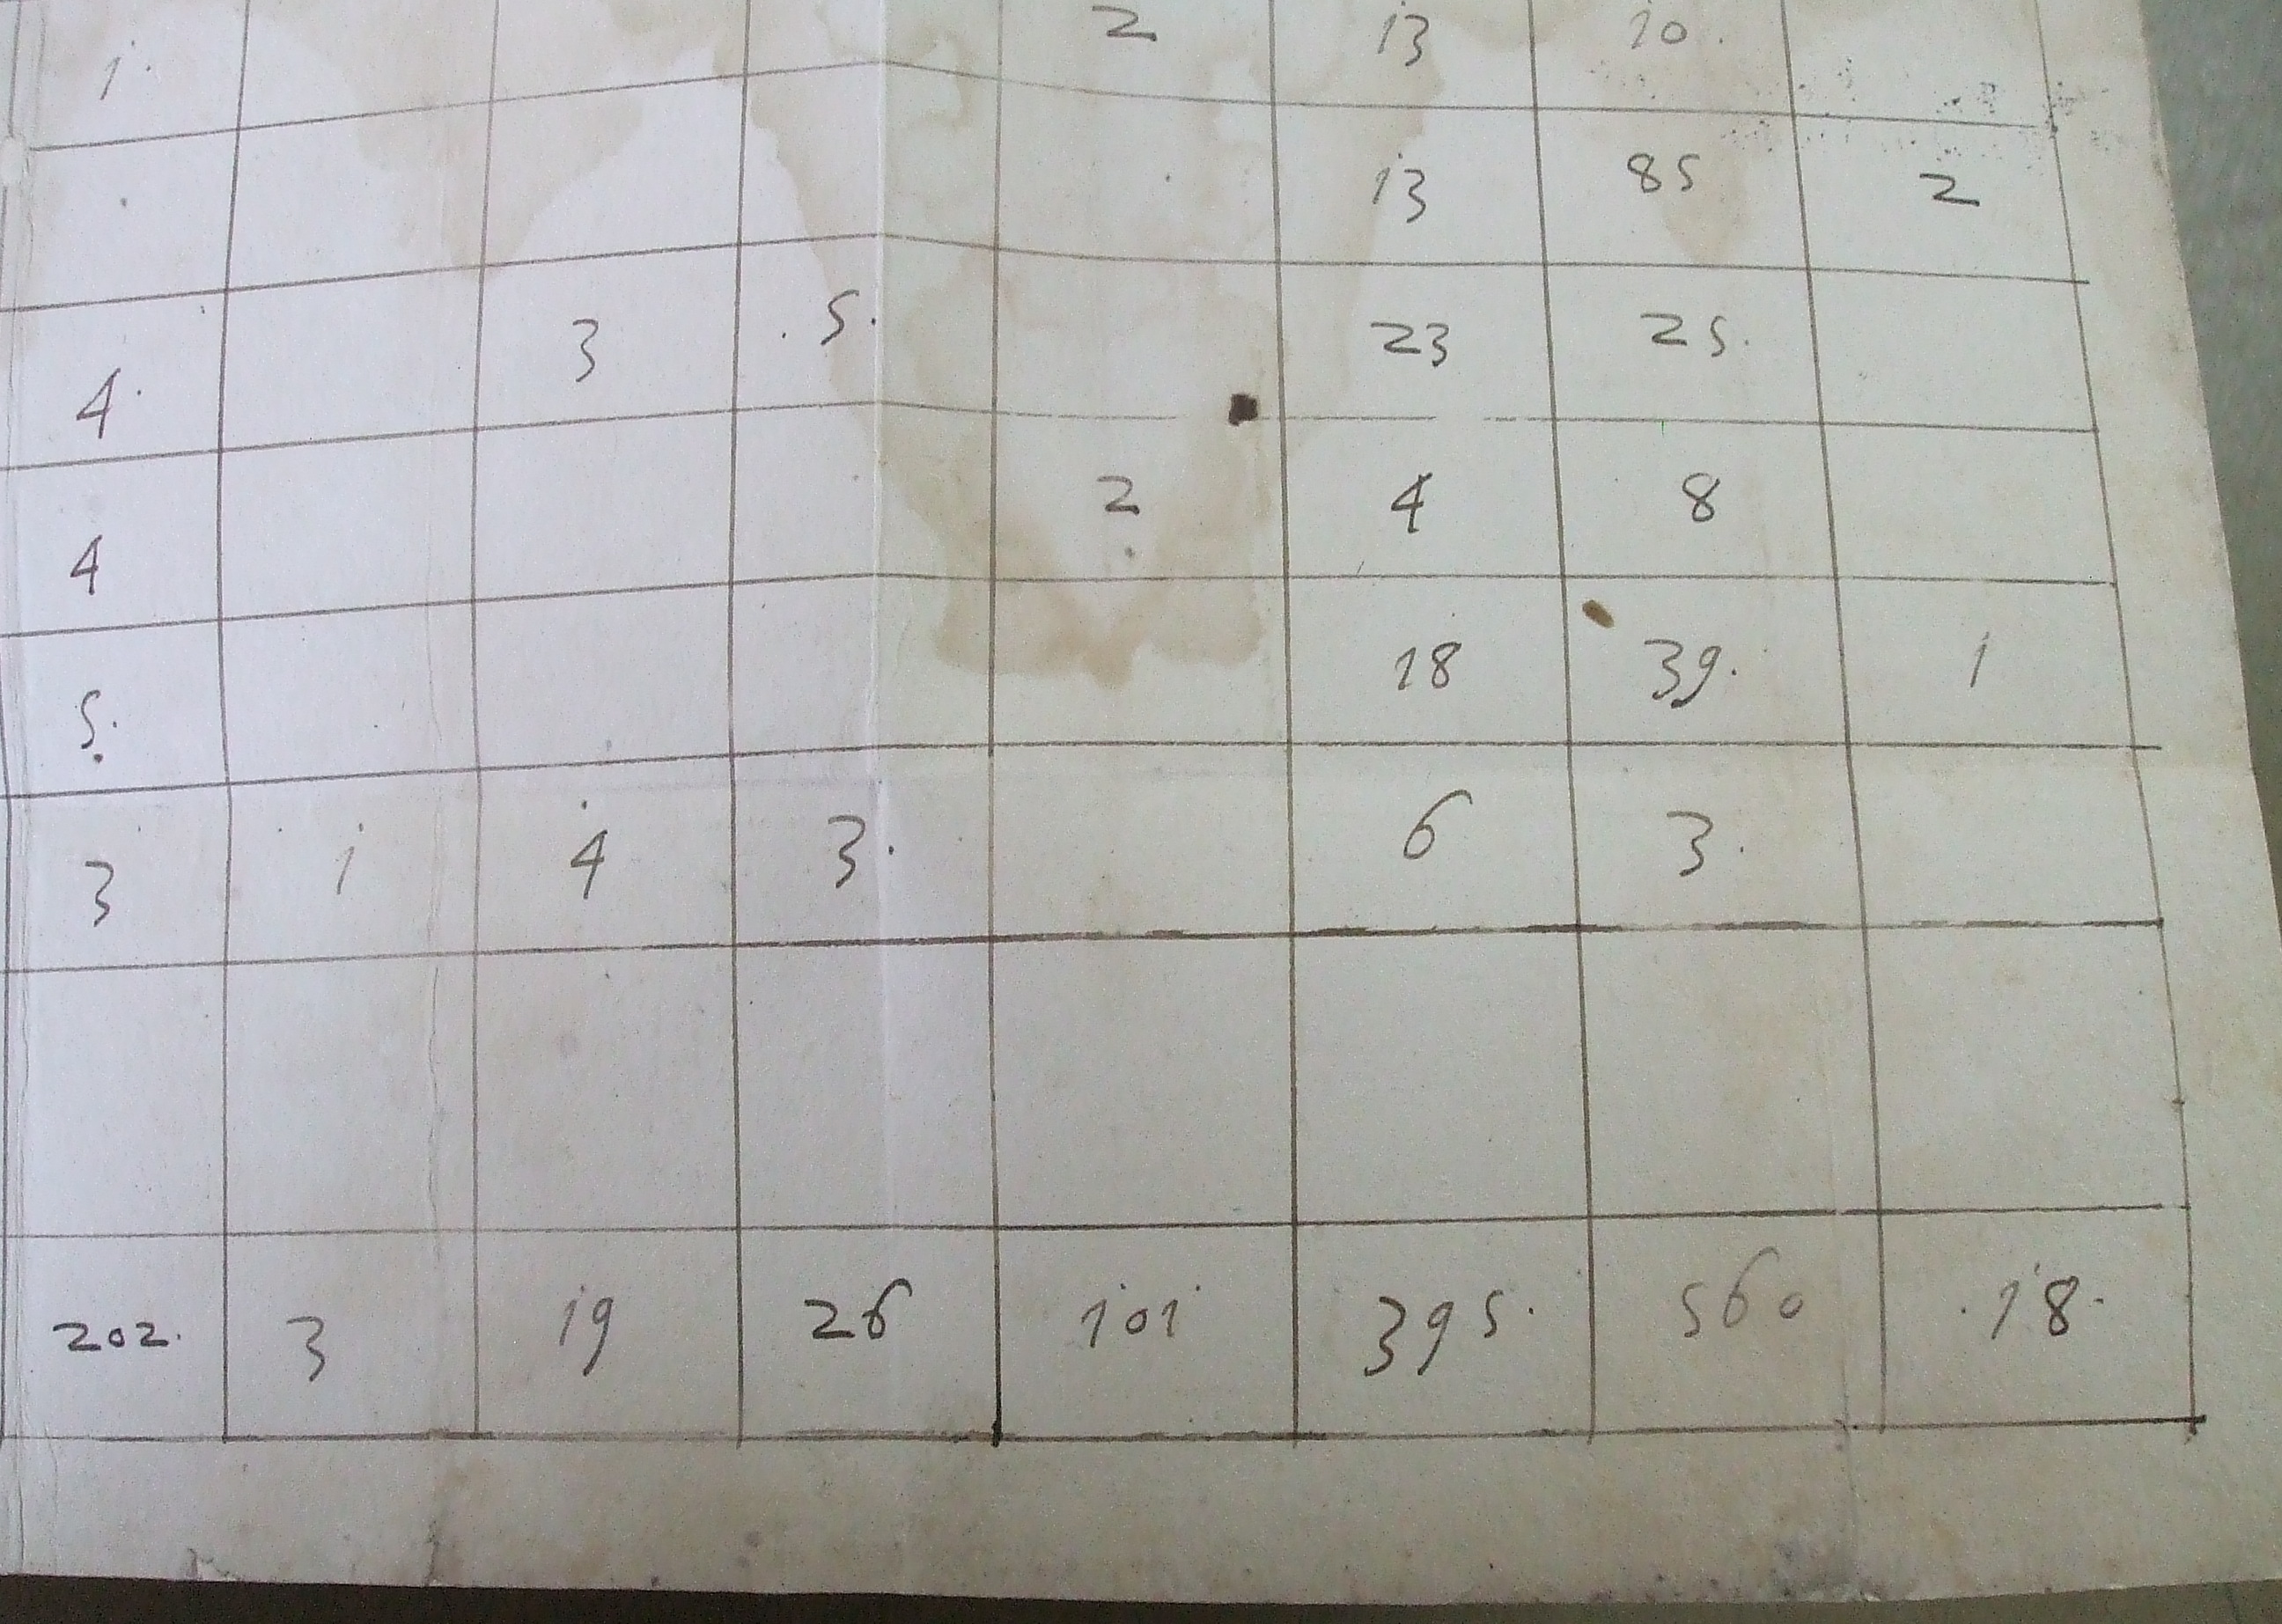 1. 2 13 10.
13 85 2
4. 3 .5. 23 25.
4 2 4 8
5. 18 39. 1
3 1 4 3. 6 3.
202. 3 19 26 101 395. 560 .18.